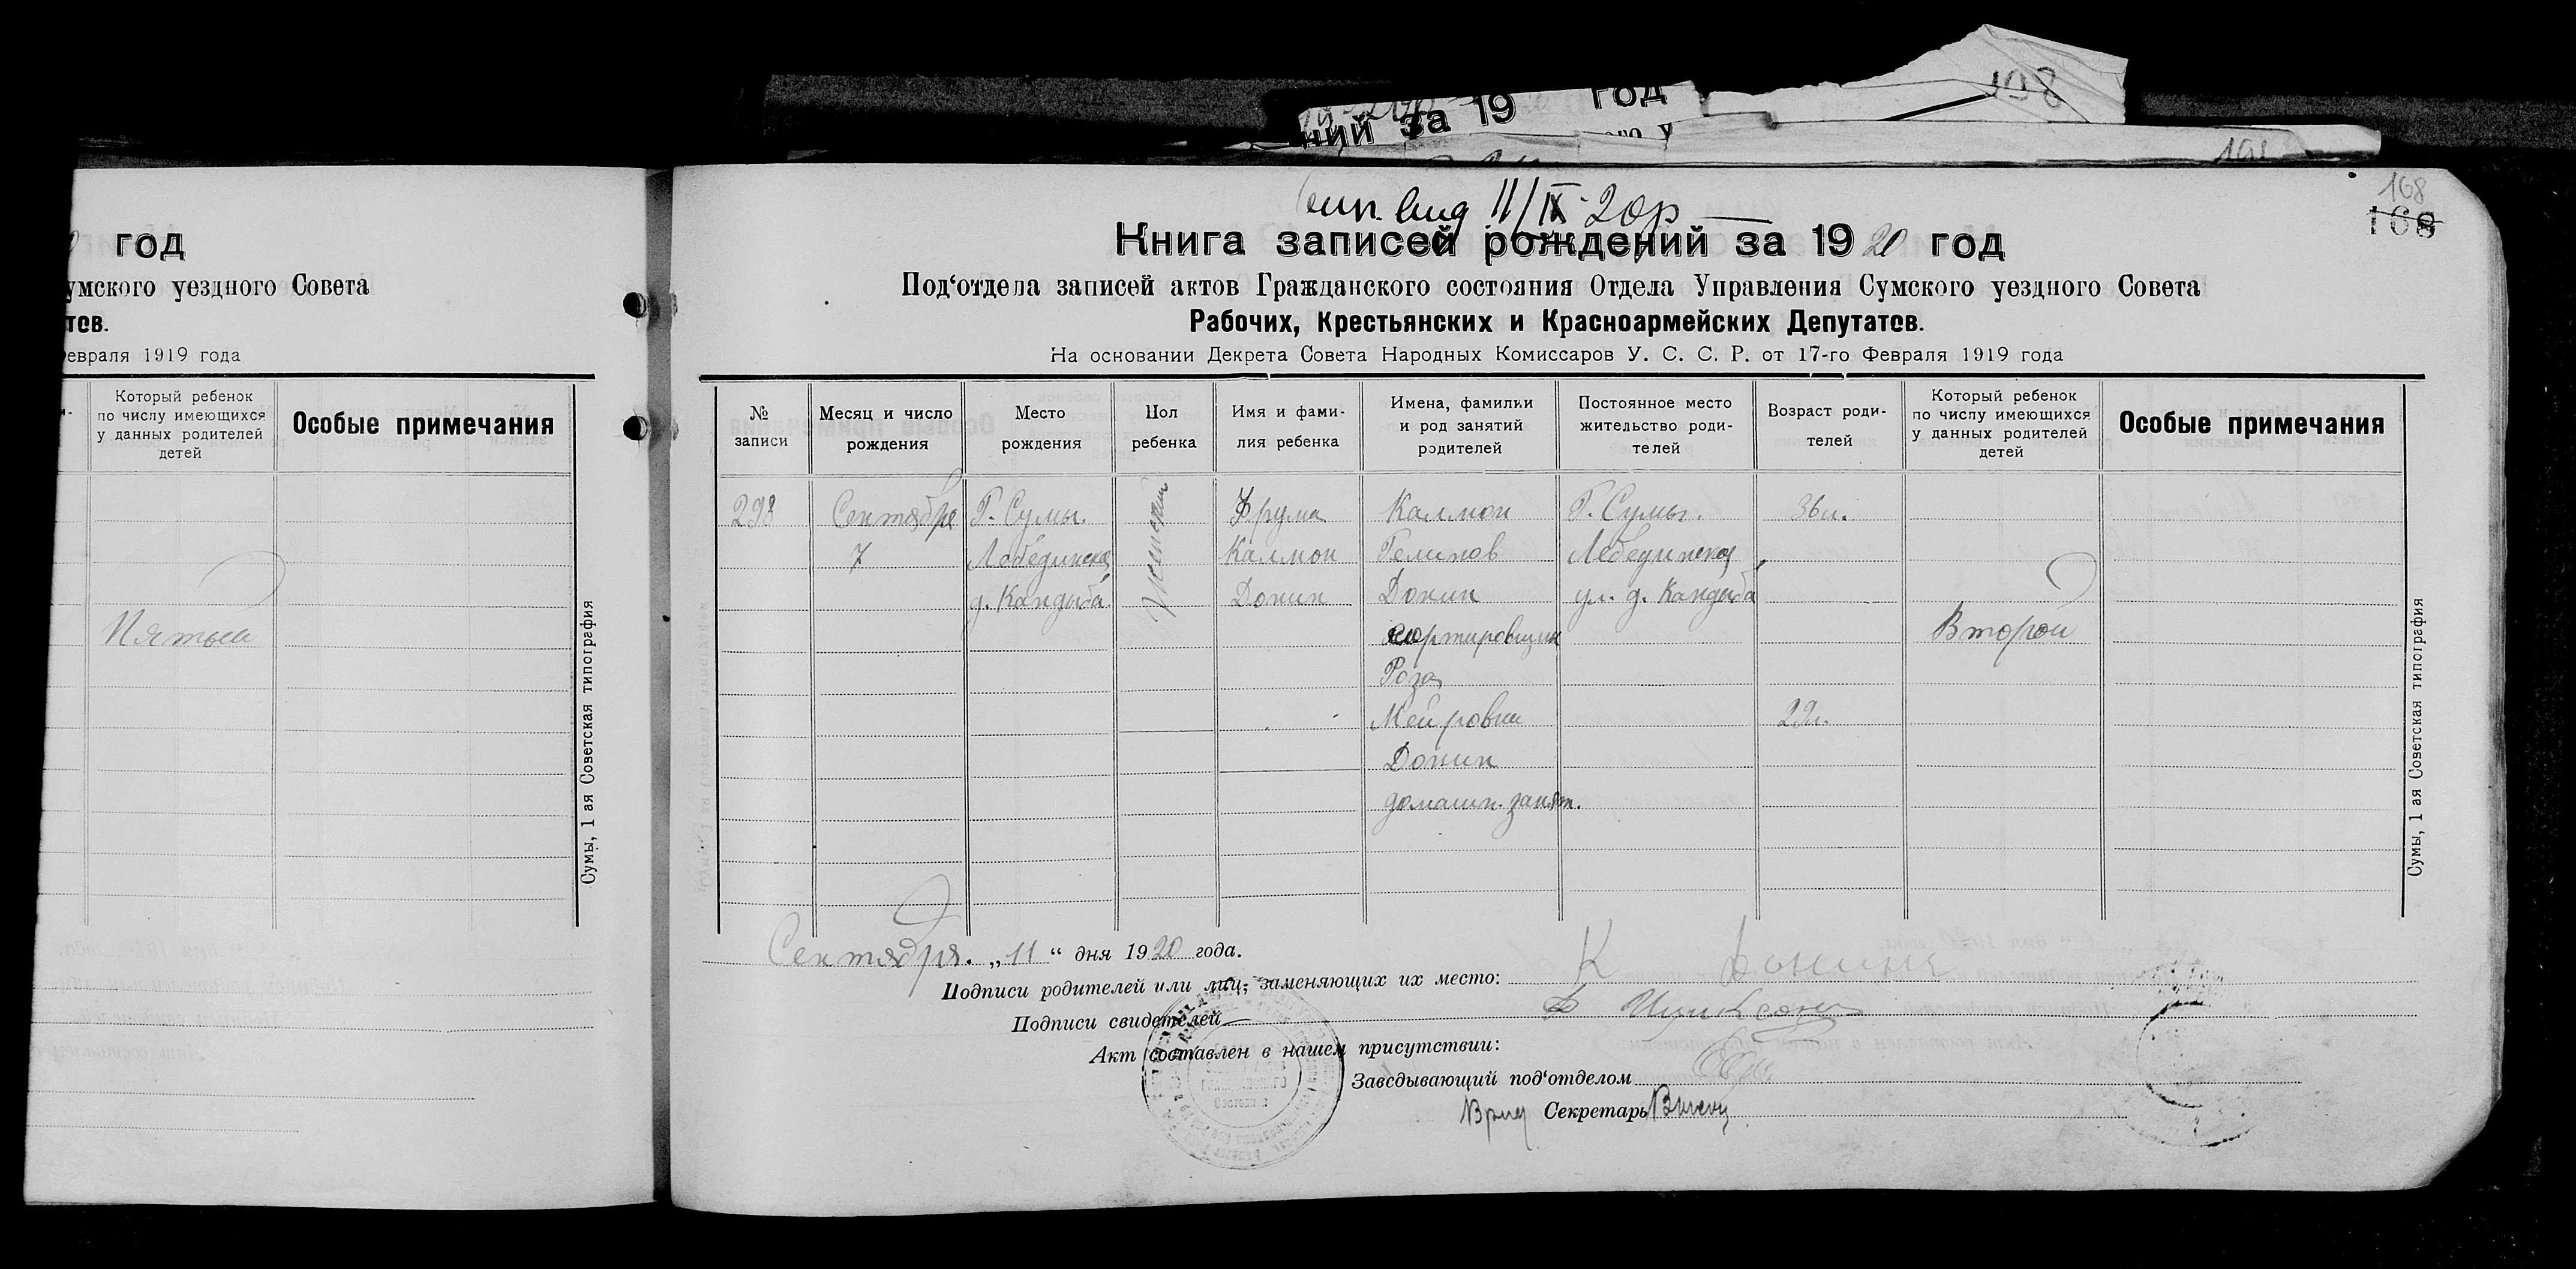 ний за 19 год
198
191
год
умского уездного Совета
тов.
Февраля 1919 года
Который ребенок
по числу имеющихся
у данных родителей
детей
Особые примечания
Пятый
Сумы, 1 ая Советская типография
11/IX 20 р
168
168
Книга записей рождений за 1920 год
Под‘отдела записей актов Гражданского состояния Отдела Управления Сумского уездного Совета
Рабочих, Крестьянских и Красноармейских Депутатов.
На основании Декрета Совета Народных Комиссаров У. С. С. Р. от 17-го Февраля 1919 года
№
записи
Месяц и число
рождения
Место
рождения
Пол
ребенка
Имя и фами-
лия ребенка
Имена, фамильи
и род занятий
родителей
Постоянное место
жительство роди-
телей
Возраст роди-
телей
Который ребенок
по числу имеющихся
у данных родителей
детей
Особые примечания
298
Сентября
7
Г. Сумы.
Лебединская
д. Кандыба
Женский
Фрума
Калмон
Донин
Калмон
Донин
сортировщик
Роза
Мейровна
Донин
домашн. занят.
Г. Сумы.
Лебединская
ул. д. Кандыба
36 л.
29 л.
Второй
Сумы, 1 ая Советская типография
Сентября. „11“ дня 1920 года.
Подписи родителей или лиц, заменяющих их место: К Донинъ
Подписи свидетелей
Акт составлен в нашем присутствии:
Заведывающий под‘отделом
Врид Секретарь